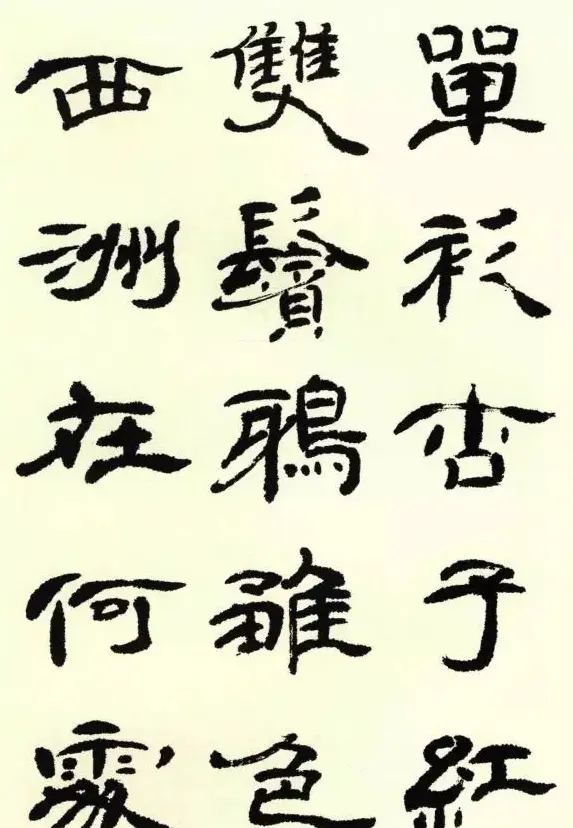 單衫杏子紅
雙鬢鴉雛色
西洲在何處